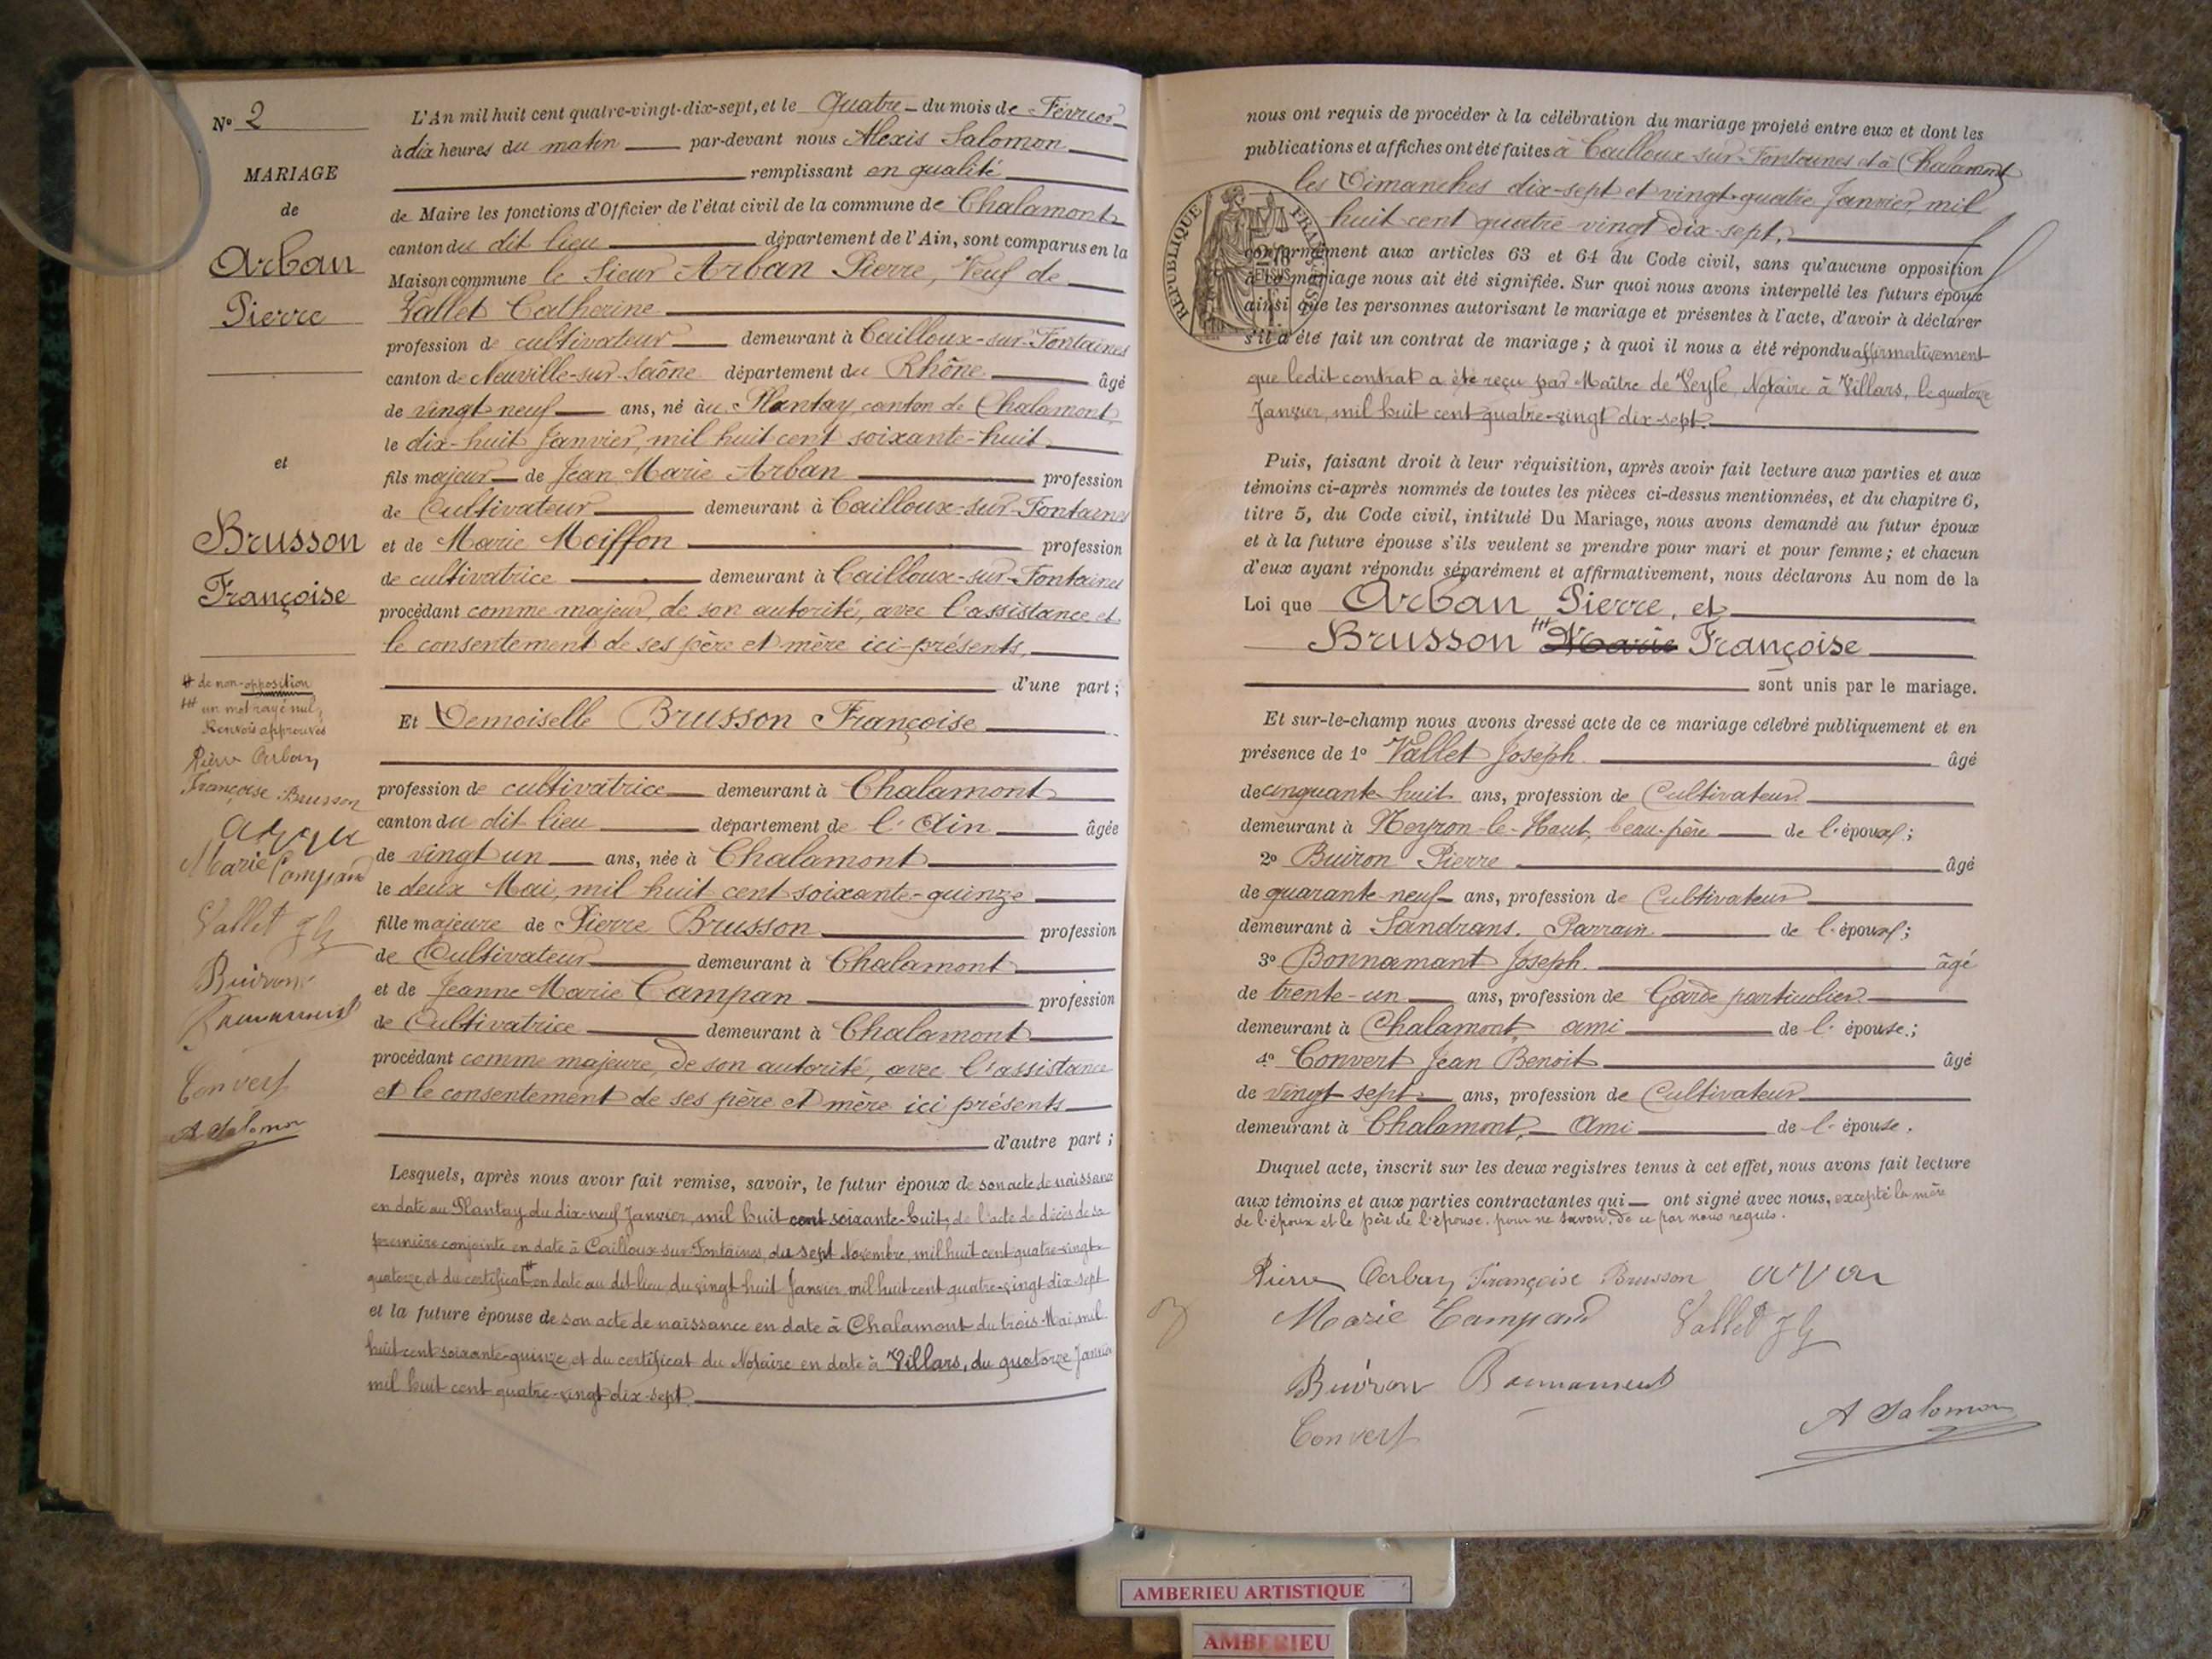 N° 2
MARIAGE
de
Arban
Pierre
et
Brusson
Françoise
# de non-opposition
## un mot rayé nul,
Renvois approuvés
Pierre Arban
Françoise Brusson
Marie Campand
Vallet
Buiron
Convert
A Salomon
L'An mil huit cent quatre-vingt-dix-sept, et le Quatre du mois de Février
à dix heures du matin par-devant nous Alexis Salomon
remplissant en qualité
de Maire les fonctions d'Officier de l'état civil de la commune de Chalamont
canton du dit lieu département de l'Ain, sont comparus en la
Maison commune le Sieur Arban Pierre, Veuf de
Vallet Catherine
profession de cultivateur demeurant à Cailloux-sur-Fontaines
canton de Neuville-sur-Saône département du Rhône âgé
de vingt neuf ans, né au Plantay canton de Chalamont,
le dix-huit Janvier, mil huit cent soixante-huit
fils majeur de Jean Marie Arban profession
de Cultivateur demeurant à Cailloux-sur-Fontaines
et de Marie Moiffon profession
de cultivatrice demeurant à Cailloux-sur-Fontaines
procédant comme majeur, de son autorité, avec l'assistance et
le consentement de ses père et mère ici-présents,
d'une part ;
Et Demoiselle Brusson Françoise
profession de cultivatrice demeurant à Chalamont
canton du dit lieu département de l'Ain âgée
de vingt un ans, née à Chalamont
le deux Mai, mil huit cent soixante-quinze
fille majeure de Pierre Brusson profession
de Cultivateur demeurant à Chalamont
et de Jeanne Marie Campan profession
de Cultivatrice demeurant à Chalamont
procédant comme majeure, de son autorité, avec l'assistance
et le consentement de ses père et mère ici présents
d'autre part ;
Lesquels, après nous avoir fait remise, savoir, le futur époux de son acte de naissance
en date au Plantay du dix-neuf Janvier, mil huit cent soixante-huit, de l'acte de décès de sa
première conjointe en date à Cailloux-sur-Fontaines, du sept Novembre, mil huit cent quatre-vingt-
quatorze, et du certificat # en date au dit lieu du vingt huit Janvier mil huit cent quatre-vingt dix-sept
et la future épouse de son acte de naissance en date à Chalamont du trois Mai, mil
huit cent soixante-quinze, et du certificat du Notaire en date à Villars, du quatorze Janvier
mil huit cent quatre-vingt dix-sept.
nous ont requis de procéder à la célébration du mariage projeté entre eux et dont les
publications et affiches ont été faites à Cailloux-sur-Fontaines et à Chalamont
les Dimanches dix-sept et vingt-quatre Janvier, mil
huit cent quatre vingt dix sept.
conformément aux articles 63 et 64 du Code civil, sans qu'aucune opposition
à ce mariage nous ait été signifiée. Sur quoi nous avons interpellé les futurs époux
ainsi que les personnes autorisant le mariage et présentes à l'acte, d'avoir à déclarer
s'il a été fait un contrat de mariage ; à quoi il nous a été répondu affirmativement
que ledit contrat a été reçu par Maître de Veyle, Notaire à Villars, le quatorze
Janvier, mil huit cent quatre-vingt dix-sept.
RÉPUBLIQUE FRANÇAISE
Puis, faisant droit à leur réquisition, après avoir fait lecture aux parties et aux
témoins ci-après nommés de toutes les pièces ci-dessus mentionnées, et du chapitre 6,
titre 5, du Code civil, intitulé Du Mariage, nous avons demandé au futur époux
et à la future épouse s'ils veulent se prendre pour mari et pour femme ; et chacun
d'eux ayant répondu séparément et affirmativement, nous déclarons Au nom de la
Loi que Arban Pierre, et
Brusson ## Marie Françoise
sont unis par le mariage.
Et sur-le-champ nous avons dressé acte de ce mariage célébré publiquement et en
présence de 1° Vallet Joseph âgé
de cinquante huit ans, profession de Cultivateur
demeurant à Neyron-le-Haut, beau-père de l'époux ;
2° Buiron Pierre âgé
de quarante neuf ans, profession de Cultivateur
demeurant à Sandrans, Parrain de l'époux ;
3° Bonnamant Joseph âgé
de trente-un ans, profession de Garde particulier
demeurant à Chalamont, ami de l'épouse ;
4° Convert Jean Benoit âgé
de vingt sept ans, profession de Cultivateur
demeurant à Chalamont, Ami de l'épouse.
Duquel acte, inscrit sur les deux registres tenus à cet effet, nous avons fait lecture
aux témoins et aux parties contractantes qui ont signé avec nous, excepté la mère
de l'époux et le père de l'épouse, pour ne savoir, de ce par nous requis.
Pierre Arban Françoise Brusson
Marie Campand Vallet
Buiron Bonnamant
Convert A Salomon
AMBERIEU ARTISTIQUE
AMBERIEU